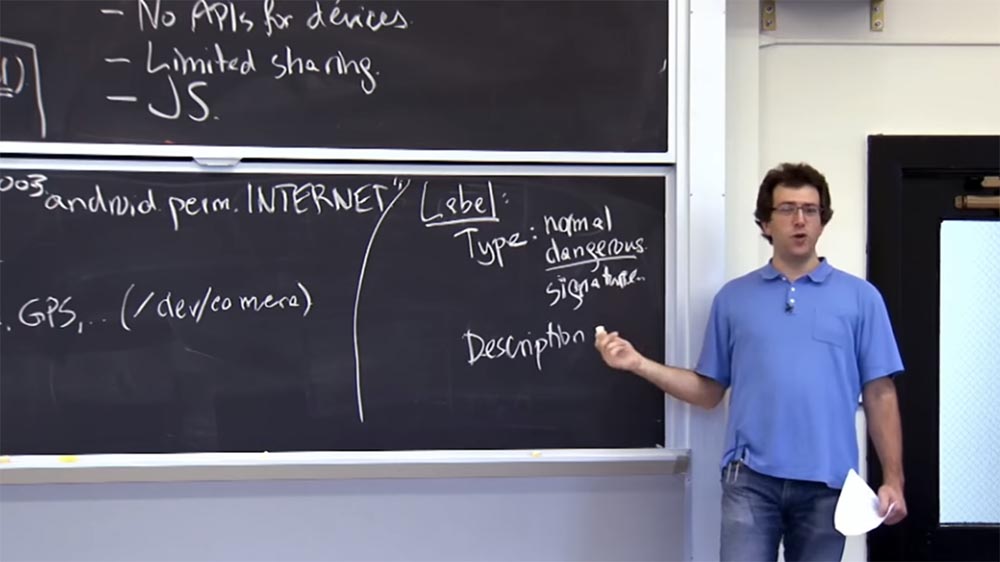 - No APIs for devices.
- Limited sharing.
- JS.
003 android.perm.INTERNET"
GPS,... (/dev/camera)
Label:
Type: normal
dangerous
signature
Description